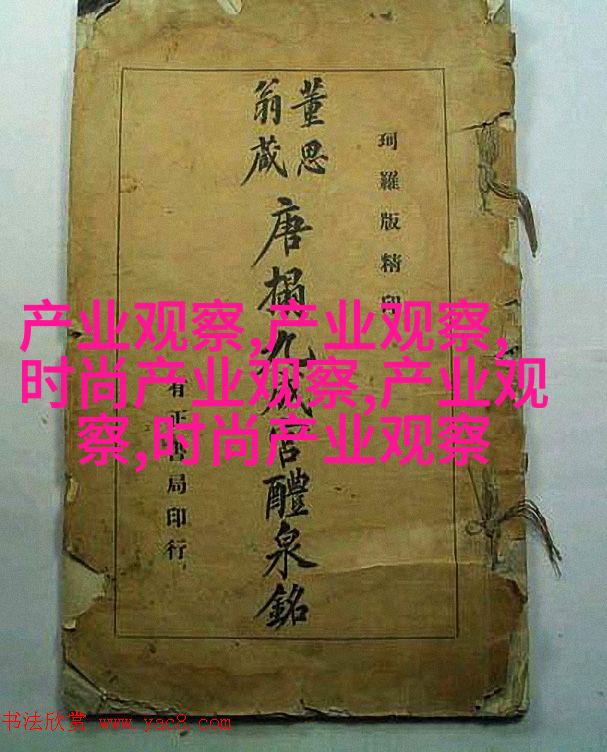 珂羅版精印
董思
翁藏
唐搨九成宮醴泉銘
有正書局印行
产业观察,产业观察,
时尚产业观察,产业观
察,时尚产业观察
书法欣赏 www.yac8.com